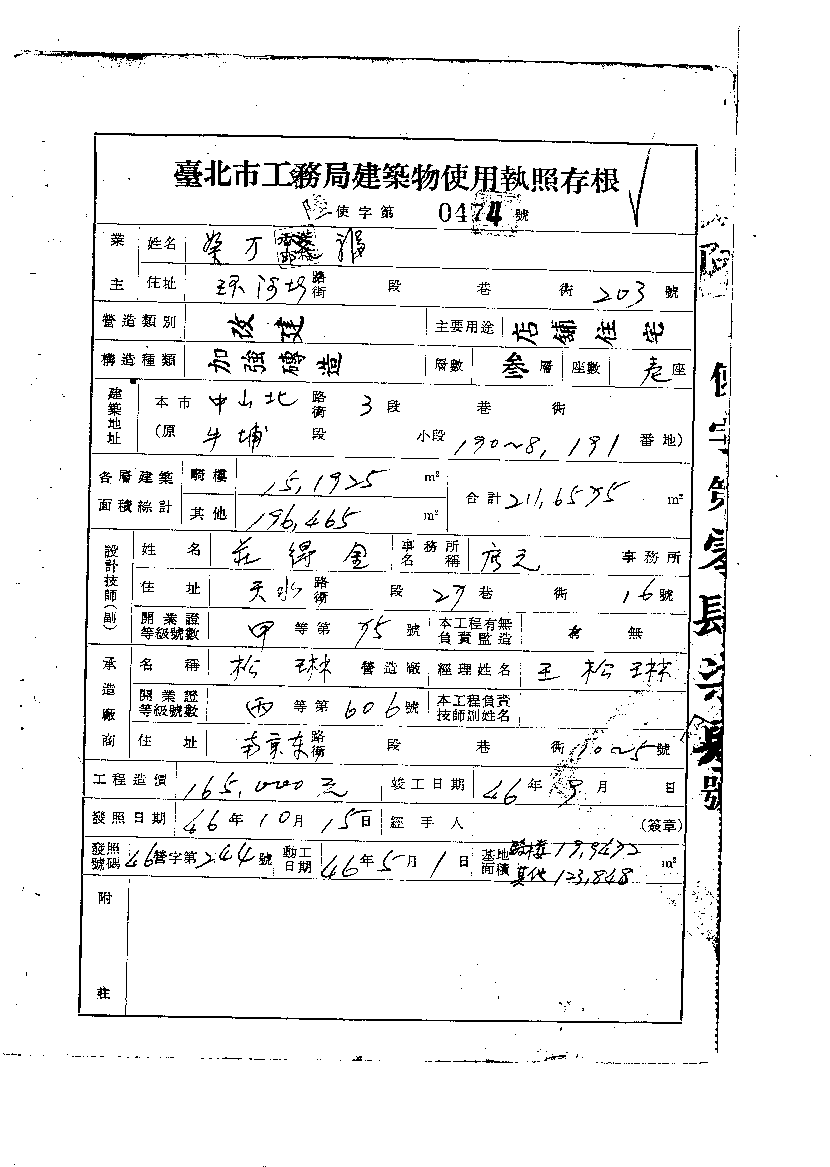 臺北市工務局建築物使用執照存根
使字第 0474 號
業主 姓名
住址 路街 段 巷 衖 203 號
營造類別 改建 主要用途 店鋪住宅
構造種類 加強磚造 層數 叁層 座數 壱座
建築地址 本市 中山北 路街 3 段 巷 衖
(原 牛埔 段 小段 190~8, 191 番地)
各層建築面積綜計 騎樓 15.1925 m² 合計 211.6575 m²
其他 196.465 m²
設計技師(副) 姓名 莊得金 事務所名稱 事務所
住址 天水 路街 段 27 巷 衖 16 號
開業證等級號數 甲 等第 75 號 本工程有無負責監造 有 無
承造廠商 名稱 松琳 營造廠 經理姓名 王松琳
開業證等級號數 丙 等第 606 號 本工程負責技師副姓名
住址 南京东 路街 段 巷 衖 90~5 號
工程造價 165,000元 竣工日期 46 年 9 月 日
發照日期 46 年 10 月 15 日 經手人 (簽章)
發照號碼 46 營字第 244 號 動工日期 46 年 5 月 1 日 基地面積 騎樓 19.9492 其他 123.848 m²
附註
使字第零肆柒肆號